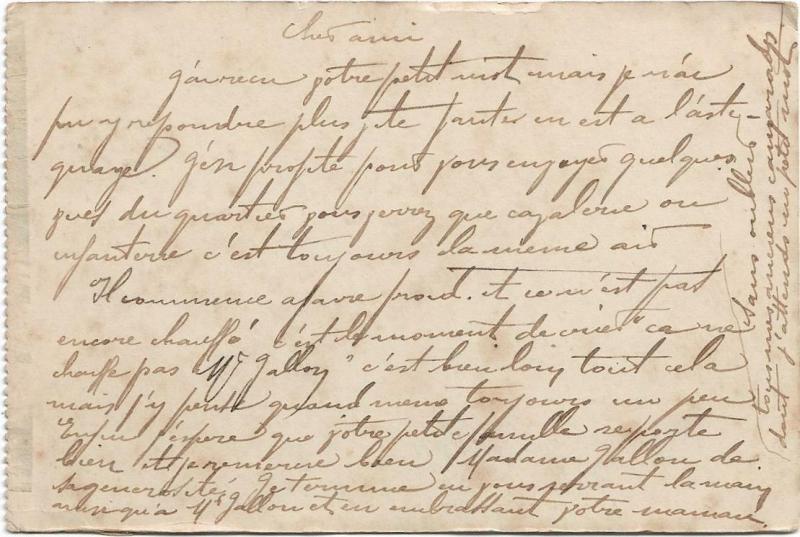 Cher ami
j'ai reçu votre petit mot mais je n'ai
pu y repondre plus vite fautes en est a l'asti-
quage. J'en profite pour vous envoyer quelques
vues du quartier vous verrez que cavalerie ou
infanterie c'est toujours la meme air
Il commence a faire froid. et ce n'est pas
encore chauffé c'est le moment de crier "ca ne
chauffe pas Mr Gallon" c'est bien loin tout cela
mais j'y pense quand meme toujours un peu
Enfin j'espere que votre petite famille se porte
bien et je remercie bien Madame Gallon de
sa generosité. Je termine en vous serrant la main
ainsi qu'a Mr Gallon et en embrassant votre maman.
Sans oublier
tous mes anciens camarades
dont j'attends un petit mot